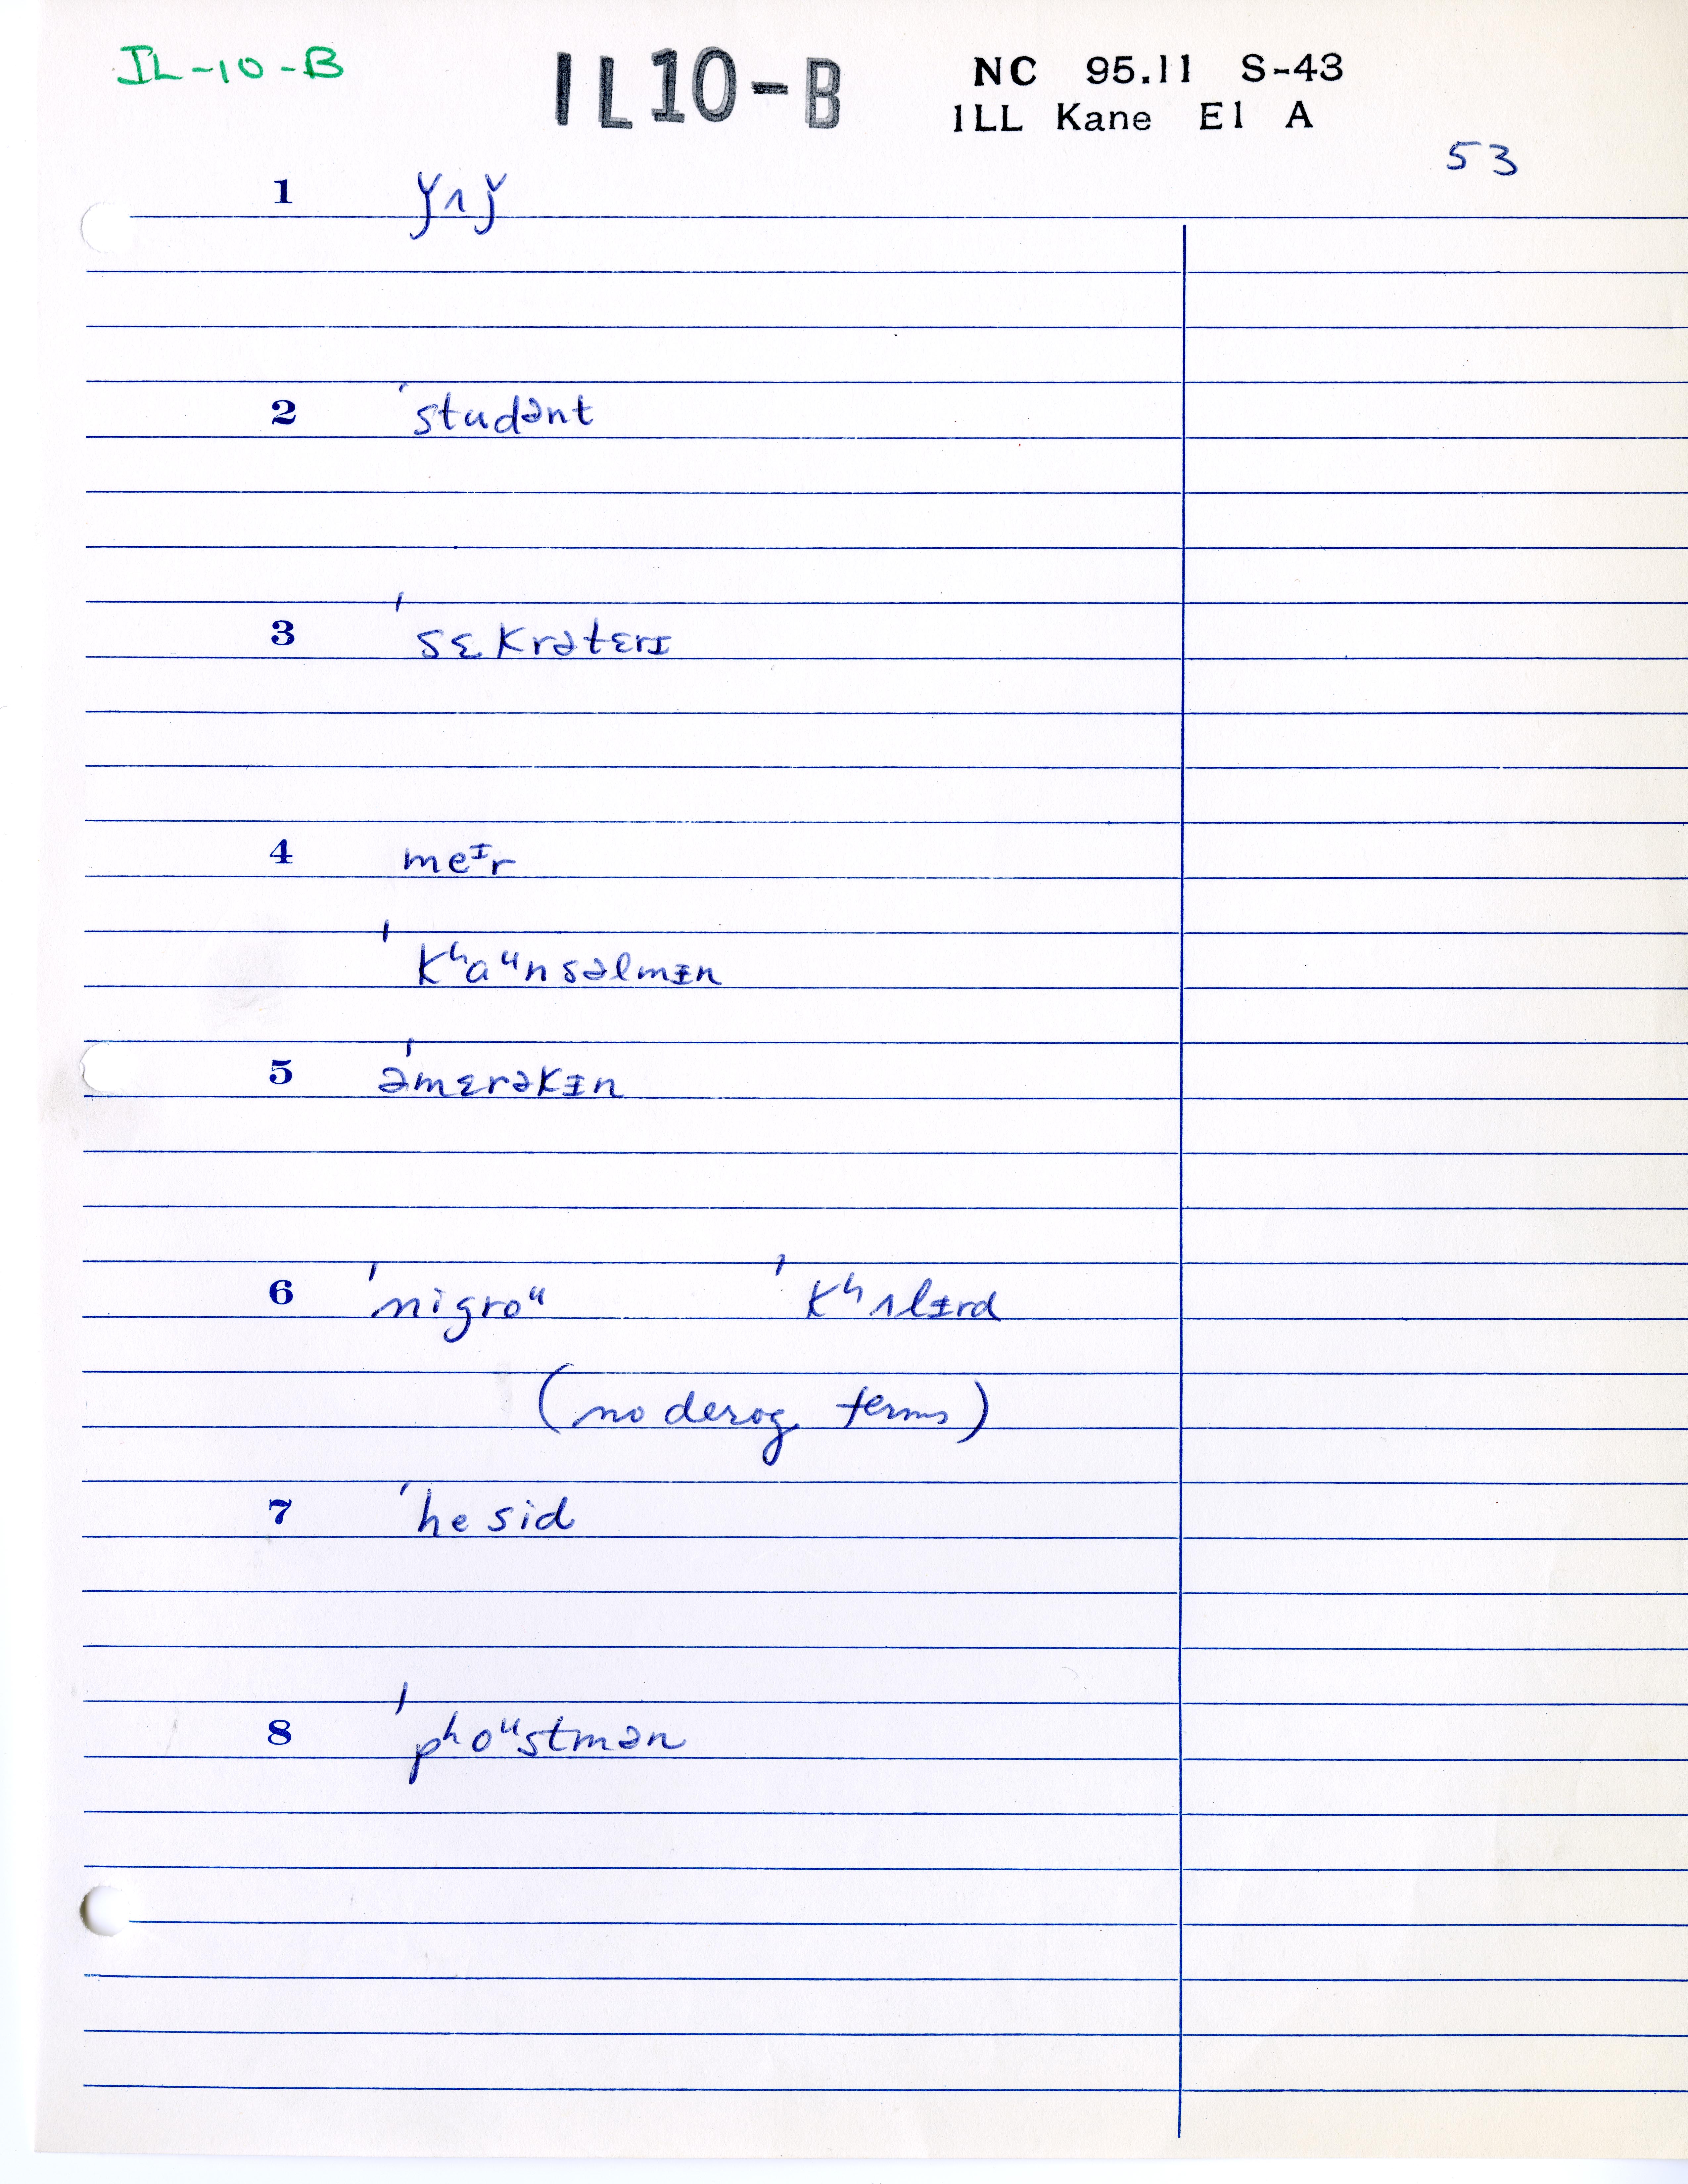 IL-10-B
IL10-B
NC 95.11 S-43
ILL Kane El A
53
1 ǰʌǰ
2 ˈstudənt
3 ˈsɛkrətɛrɪ
4 meᴵr
ˈkʰaᵘnsəlmɨn
5 əˈmɛrəkɨn
6 ˈnigroᵘ ˈkʰʌlɨrd
(no derog. terms)
7 ˈhesid
8 ˈpʰoᵘstmən